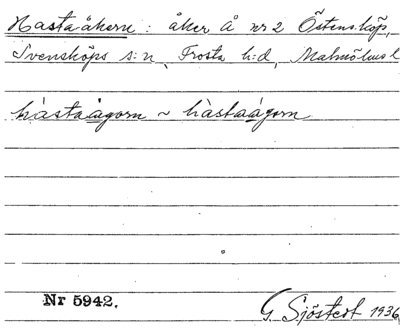 Hastaåkern : åker å nr 2 Östensköp,
Svensköps s:n, Frosta h:d, Malmöhus l
hàstaágorn ~ hàstaágorn
Nr 5942.
G. Sjöstedt 1936